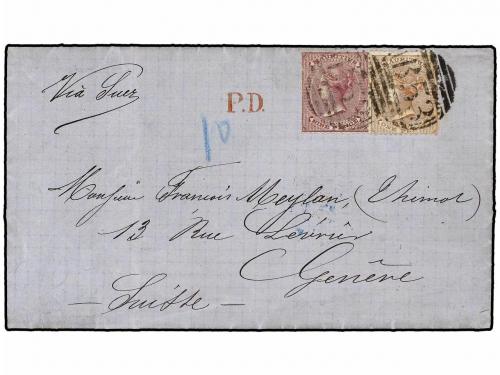 Via Suez
P.D.
10
Monsieur Francois Meylan, (Thimot)
13 Rue Lévrier
Genêve
— Suisse —
B53